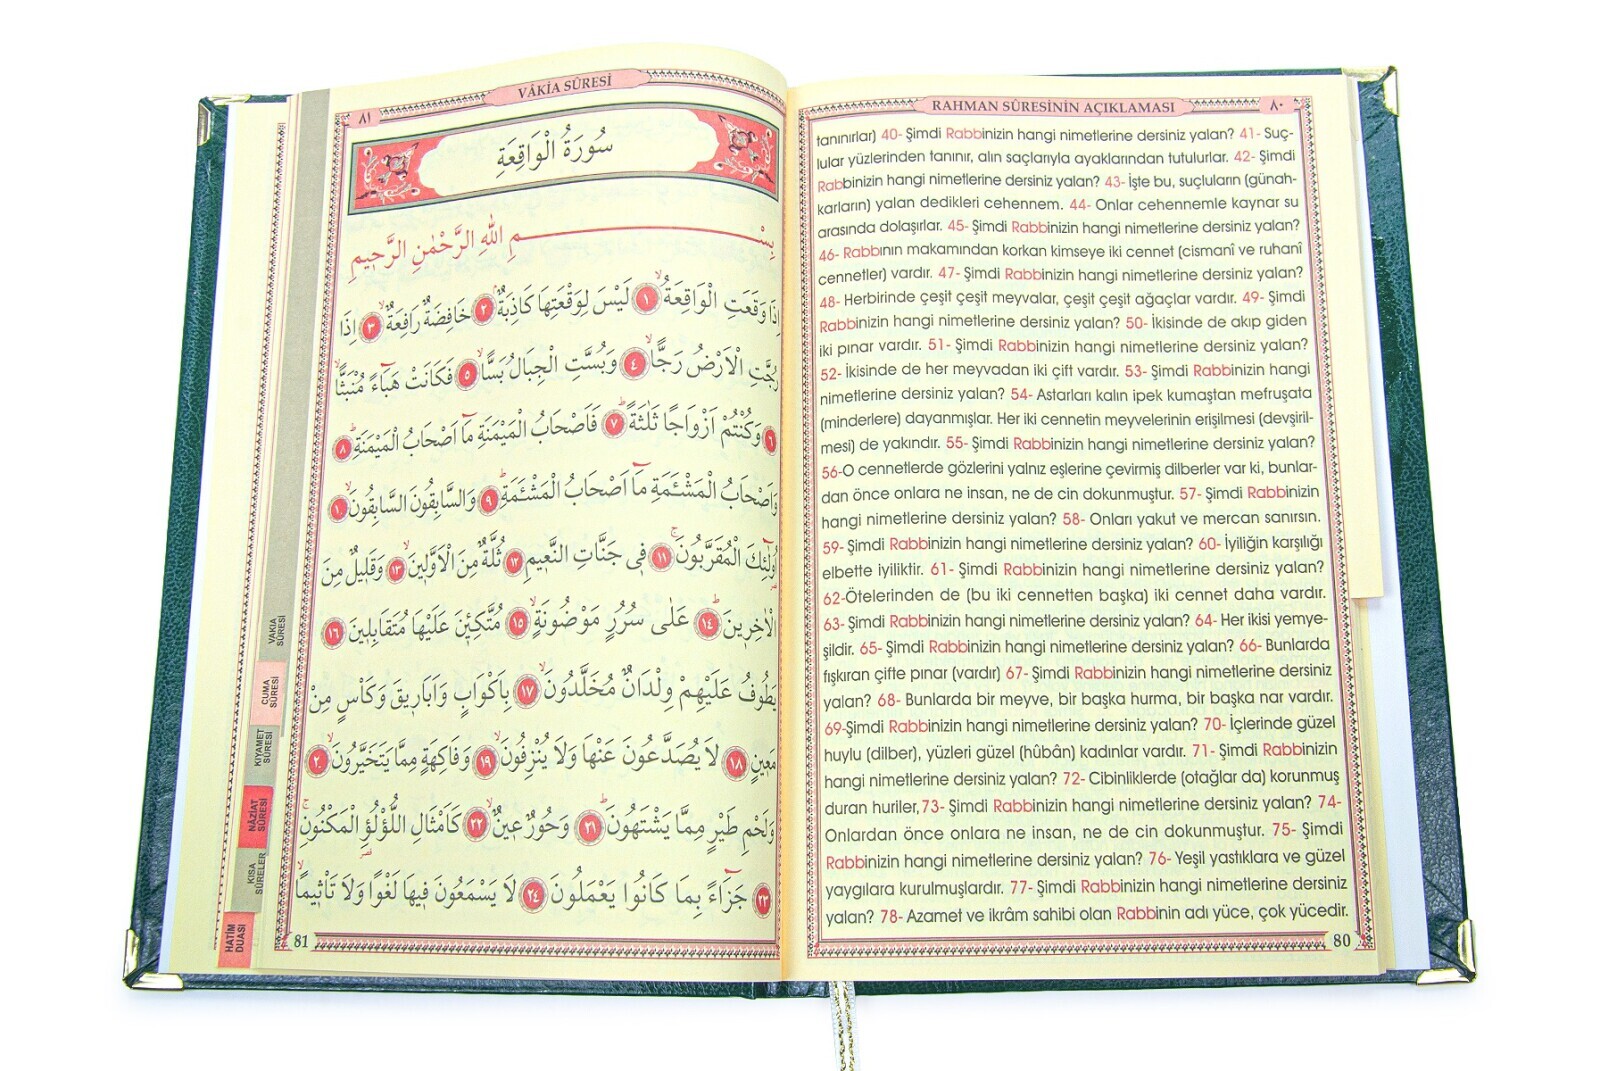 RAHMAN SÛRESİNİN AÇIKLAMASI
٨٠
tanınırlar) 40- Şimdi Rabbinizin hangi nimetlerine dersiniz yalan? 41- Suç-
lular yüzlerinden tanınır, alın saçlarıyla ayaklarından tutulurlar. 42- Şimdi
Rabbinizin hangi nimetlerine dersiniz yalan? 43- İşte bu, suçluların (günah-
karların) yalan dedikleri cehennem. 44- Onlar cehennemle kaynar su
arasında dolaşırlar. 45- Şimdi Rabbinizin hangi nimetlerine dersiniz yalan?
46- Rabbının makamından korkan kimseye iki cennet (cismanî ve ruhanî
cennetler) vardır. 47- Şimdi Rabbinizin hangi nimetlerine dersiniz yalan?
48- Herbirinde çeşit çeşit meyvalar, çeşit çeşit ağaçlar vardır. 49- Şimdi
Rabbinizin hangi nimetlerine dersiniz yalan? 50- İkisinde de akıp giden
iki pınar vardır. 51- Şimdi Rabbinizin hangi nimetlerine dersiniz yalan?
52- İkisinde de her meyvadan iki çift vardır. 53- Şimdi Rabbinizin hangi
nimetlerine dersiniz yalan? 54- Astarları kalın ipek kumaştan mefruşata
(minderlere) dayanmışlar. Her iki cennetin meyvelerinin erişilmesi (devşiril-
mesi) de yakındır. 55- Şimdi Rabbinizin hangi nimetlerine dersiniz yalan?
56-O cennetlerde gözlerini yalnız eşlerine çevirmiş dilberler var ki, bunlar-
dan önce onlara ne insan, ne de cin dokunmuştur. 57- Şimdi Rabbinizin
hangi nimetlerine dersiniz yalan? 58- Onları yakut ve mercan sanırsın.
59- Şimdi Rabbinizin hangi nimetlerine dersiniz yalan? 60- İyiliğin karşılığı
elbette iyiliktir. 61- Şimdi Rabbinizin hangi nimetlerine dersiniz yalan?
62-Ötelerinden de (bu iki cennetten başka) iki cennet daha vardır.
63- Şimdi Rabbinizin hangi nimetlerine dersiniz yalan? 64- Her ikisi yemye-
şildir. 65- Şimdi Rabbinizin hangi nimetlerine dersiniz yalan? 66- Bunlarda
fışkıran çifte pınar (vardır) 67- Şimdi Rabbinizin hangi nimetlerine dersiniz
yalan? 68- Bunlarda bir meyve, bir başka hurma, bir başka nar vardır.
69-Şimdi Rabbinizin hangi nimetlerine dersiniz yalan? 70- İçlerinde güzel
huylu (dilber), yüzleri güzel (hûbân) kadınlar vardır. 71- Şimdi Rabbinizin
hangi nimetlerine dersiniz yalan? 72- Cibinliklerde (otağlar da) korunmuş
duran huriler,73- Şimdi Rabbinizin hangi nimetlerine dersiniz yalan? 74-
Onlardan önce onlara ne insan, ne de cin dokunmuştur. 75- Şimdi
Rabbinizin hangi nimetlerine dersiniz yalan? 76- Yeşil yastıklara ve güzel
yaygılara kurulmuşlardır. 77- Şimdi Rabbinizin hangi nimetlerine dersiniz
yalan? 78- Azamet ve ikrâm sahibi olan Rabbinin adı yüce, çok yücedir.
80
VÂKİA SÛRESİ
٨١
سُورَةُ الْوَاقِعَةِ
بِسْمِ اللهِ الرَّحْمٰنِ الرَّحِيمِ
اِذَا وَقَعَتِ الْوَاقِعَةُۙ ١ لَيْسَ لِوَقْعَتِهَا كَاذِبَةٌۢ ٢ خَافِضَةٌ رَافِعَةٌۙ ٣ اِذَا
رُجَّتِ الْاَرْضُ رَجًّاۙ ٤ وَبُسَّتِ الْجِبَالُ بَسًّاۙ ٥ فَكَانَتْ هَبَٓاءً مُنْبَثًّاۙ
٦ وَكُنْتُمْ اَزْوَاجًا ثَلٰثَةًۜ ٧ فَاَصْحَابُ الْمَيْمَنَةِ مَٓا اَصْحَابُ الْمَيْمَنَةِۜ ٨
وَاَصْحَابُ الْمَشْـَٔمَةِ مَٓا اَصْحَابُ الْمَشْـَٔمَةِۜ ٩ وَالسَّابِقُونَ السَّابِقُونَۙ ١٠
اُولٰٓئِكَ الْمُقَرَّبُونَۚ ١١ فِي جَنَّاتِ النَّعِيمِ ١٢ ثُلَّةٌ مِنَ الْاَوَّلِينَۙ ١٣ وَقَلِيلٌ مِنَ
الْاٰخِرِينَۜ ١٤ عَلٰى سُرُرٍ مَوْضُونَةٍۙ ١٥ مُتَّكِـِٔينَ عَلَيْهَا مُتَقَابِلِينَ ١٦
يَطُوفُ عَلَيْهِمْ وِلْدَانٌ مُخَلَّدُونَۙ ١٧ بِاَكْوَابٍ وَاَبَارِيقَ وَكَاْسٍ مِنْ
مَعِينٍۙ ١٨ لَا يُصَدَّعُونَ عَنْهَا وَلَا يُنْزِفُونَۙ ١٩ وَفَاكِهَةٍ مِمَّا يَتَخَيَّرُونَۙ ٢٠
وَلَحْمِ طَيْرٍ مِمَّا يَشْتَهُونَۜ ٢١ وَحُورٌ عِينٌۙ ٢٢ كَاَمْثَالِ اللُّؤْلُؤِ الْمَكْنُونِۚ
٢٣ جَزَٓاءً بِمَا كَانُوا يَعْمَلُونَ ٢٤ لَا يَسْمَعُونَ فِيهَا لَغْوًا وَلَا تَأْثِيمًاۙ
81
VAKIA
SÛRESİ
CUMA
SÛRESİ
KIYAMET
SÛRESİ
NÂZİAT
SÛRESİ
KISA
SÛRELER
HATİM
DUASI